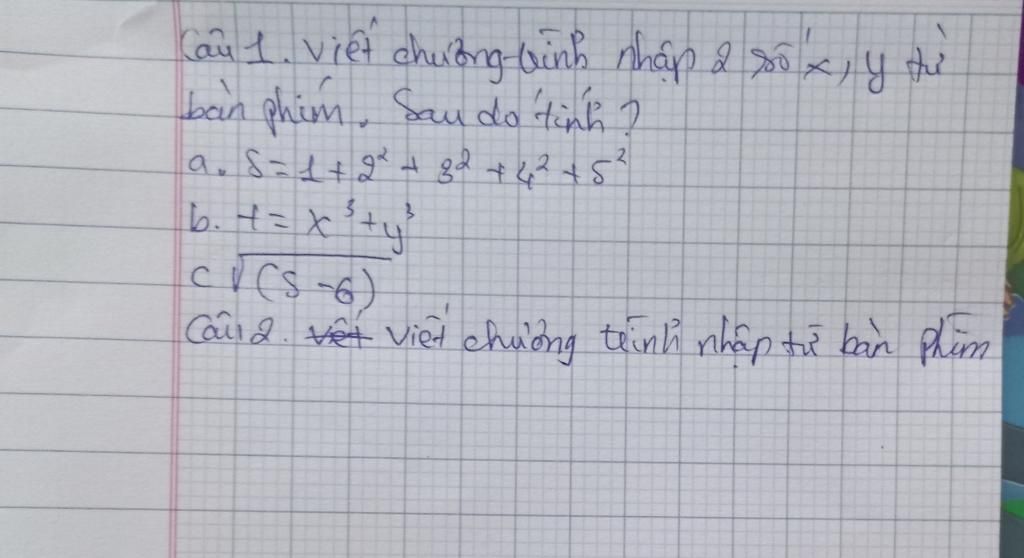 Câu 1. Viết chương trình nhập 2 số x, y từ
bàn phím. Sau do tính?
a. S = 1 + 2² + 3² + 4² + 5²
b. t = x³ + y³
c √(S - 6)
Câu 2. viết chương trình nhập từ bàn phím